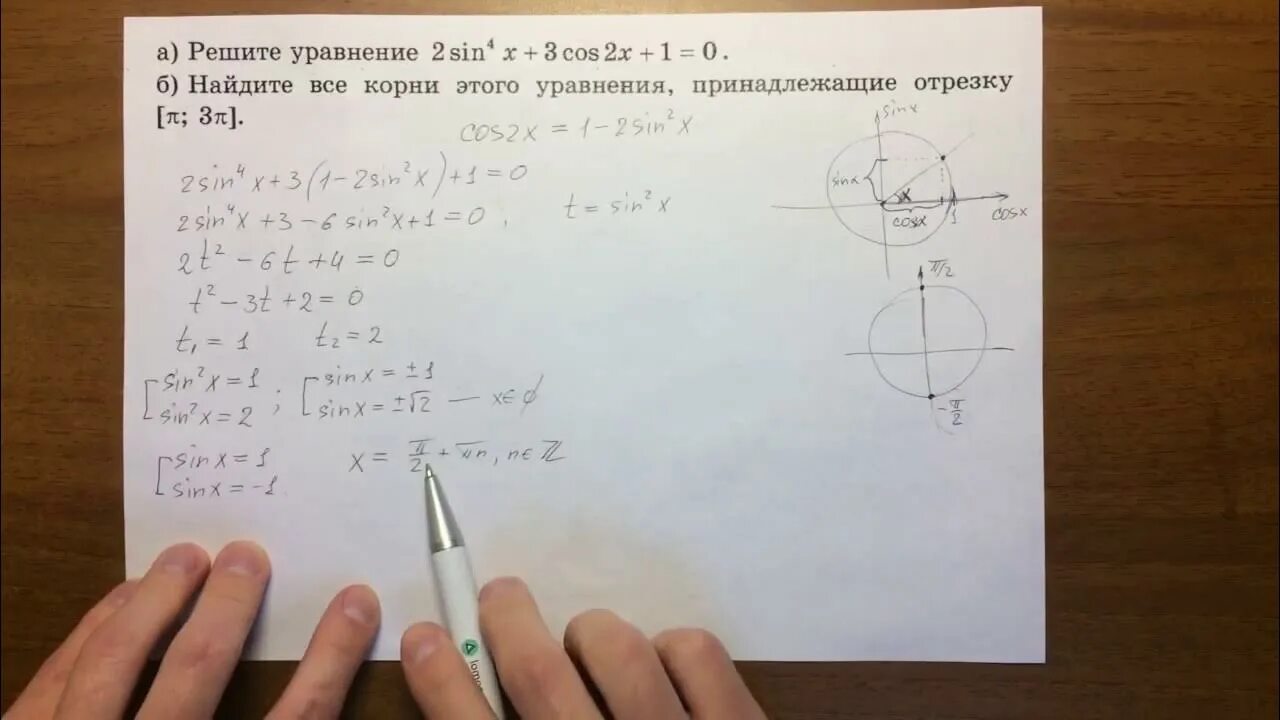 а) Решите уравнение 2 sin⁴ x + 3 cos 2x + 1 = 0.
б) Найдите все корни этого уравнения, принадлежащие отрезку
[π; 3π].
cos2x = 1 - 2sin²x
2sin⁴x + 3(1 - 2sin²x) + 1 = 0
2sin⁴x + 3 - 6 sin²x + 1 = 0,
t = sin²x
2t² - 6t + 4 = 0
t² - 3t + 2 = 0
t₁ = 1 t₂ = 2
[ sin²x = 1
sin²x = 2 ;
[ sinx = ±1
sinx = ±√2 — x∈ ∅
[ sinx = 1
sinx = -1
x = π/2 + πn, n∈ℤ
sinx
sinx
x
cosx
1
cosx
π/2
-π/2